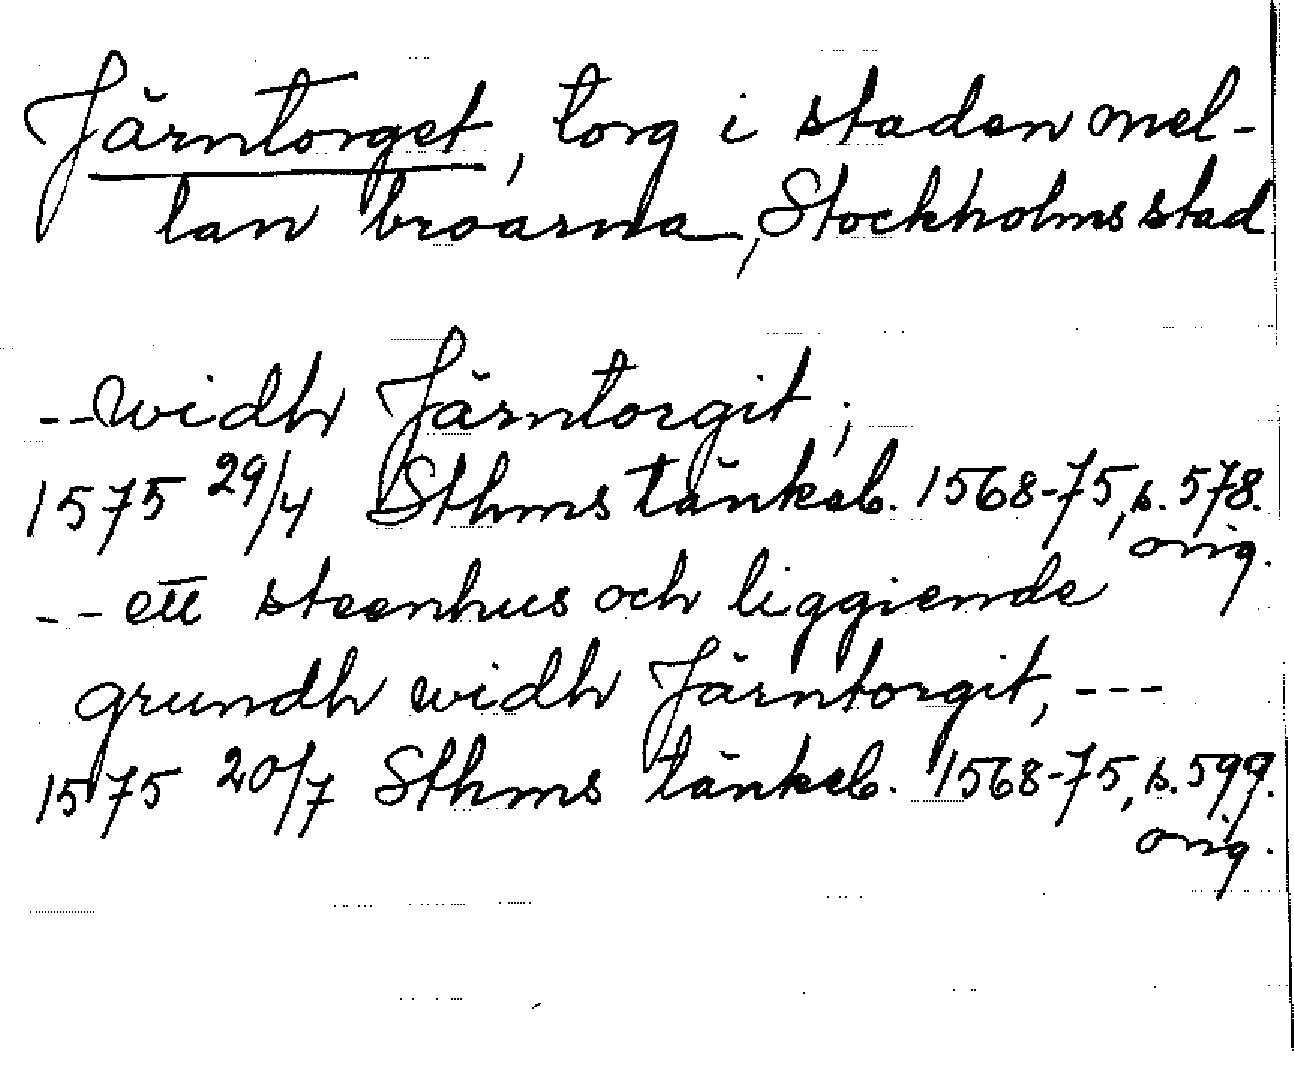 Järntorget, torg i staden mel-
lan broarna, Stockholms stad
--widh Järntorgit;
1575 29/4 Sthms tänkeb. 1568-75, s. 578.
orig.
-- ett steenhus och liggiende
grundh widh Järntorgit, ---
1575 20/7 Sthms tänkeb. 1568-75, s. 599.
orig.